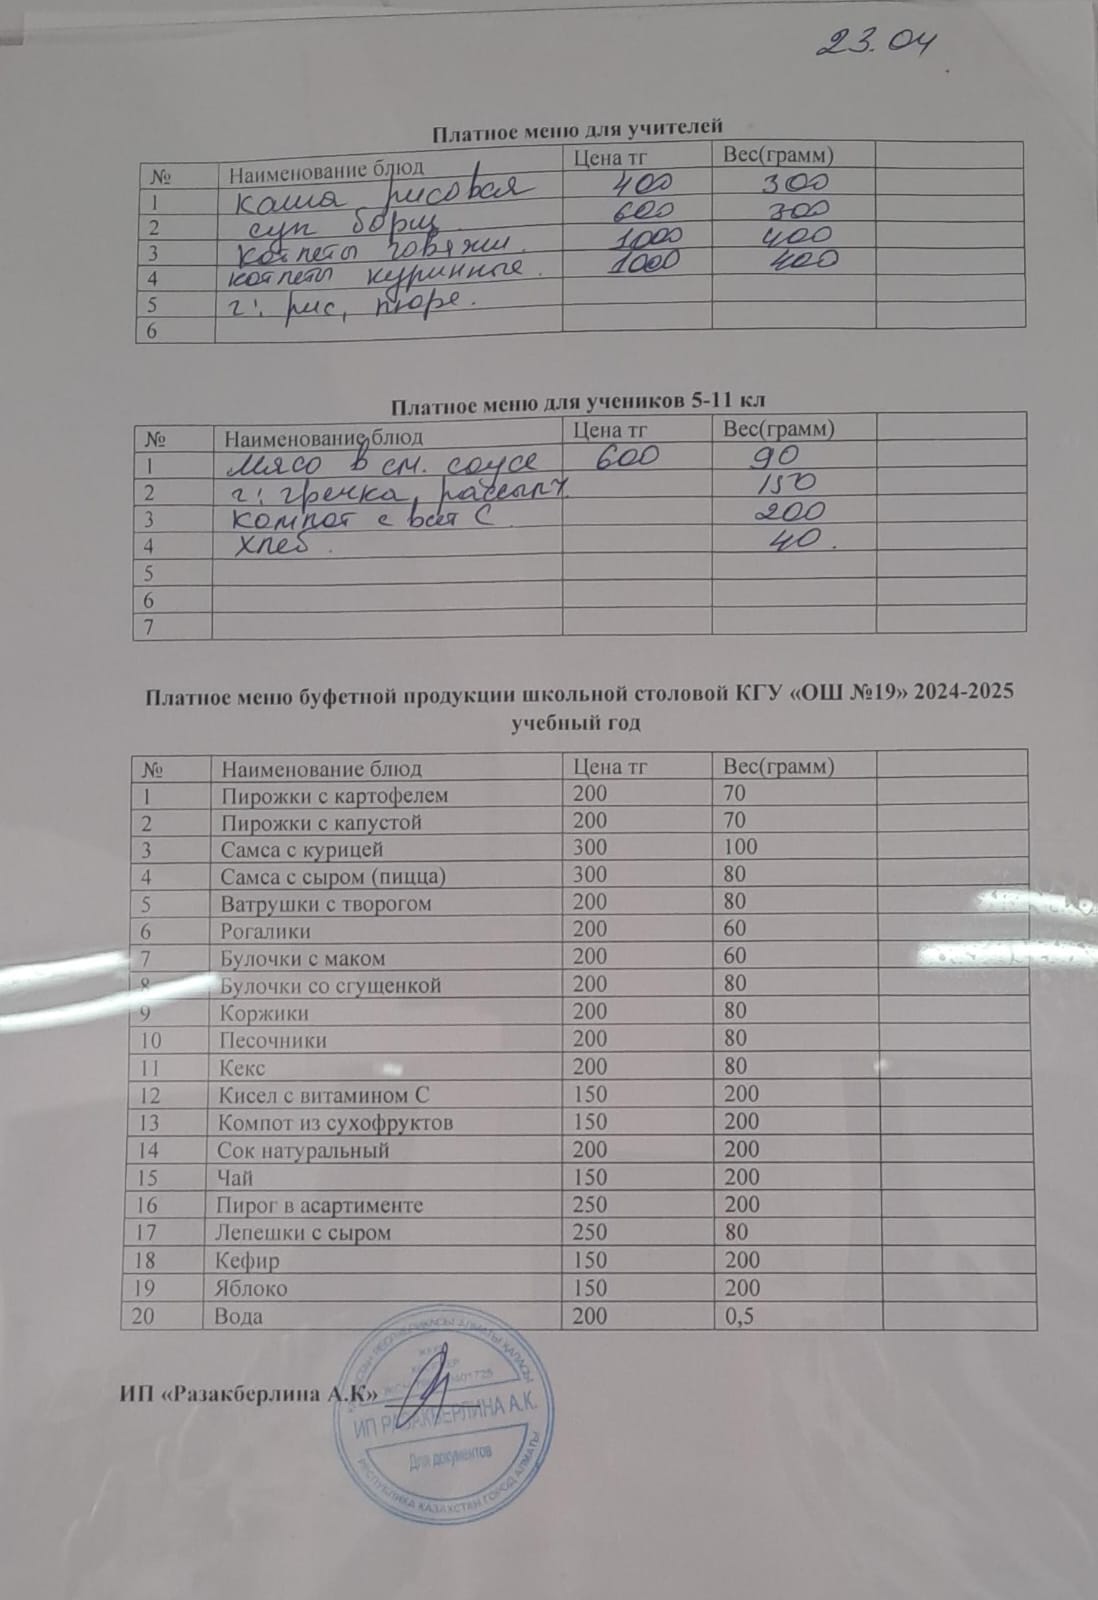 23.04
Платное меню для учителей
№ Наименование блюд Цена тг Вес(грамм)
1 каша рисовая 400 300
2 суп борщ 600 300
3 котлеты говяжи. 1000 400
4 котлеты куринные. 1000 400
5 г: рис, пюре.
6
Платное меню для учеников 5-11 кл
№ Наименование блюд Цена тг Вес(грамм)
1 Мясо в см. соусе 600 90
2 г: гречка, рассып. 150
3 Компот с вит С 200
4 хлеб. 40.
5
6
7
Платное меню буфетной продукции школьной столовой КГУ «ОШ №19» 2024-2025
учебный год
№ Наименование блюд Цена тг Вес(грамм)
1 Пирожки с картофелем 200 70
2 Пирожки с капустой 200 70
3 Самса с курицей 300 100
4 Самса с сыром (пицца) 300 80
5 Ватрушки с творогом 200 80
6 Рогалики 200 60
7 Булочки с маком 200 60
8 Булочки со сгущенкой 200 80
9 Коржики 200 80
10 Песочники 200 80
11 Кекс 200 80
12 Кисел с витамином С 150 200
13 Компот из сухофруктов 150 200
14 Сок натуральный 200 200
15 Чай 150 200
16 Пирог в асартименте 250 200
17 Лепешки с сыром 250 80
18 Кефир 150 200
19 Яблоко 150 200
20 Вода 200 0,5
ИП «Разакберлина А.К»
ИП РАЗАКБЕРЛИНА А.К.
Для документов
РЕСПУБЛИКА КАЗАХСТАН ГОРОД АЛМАТЫ